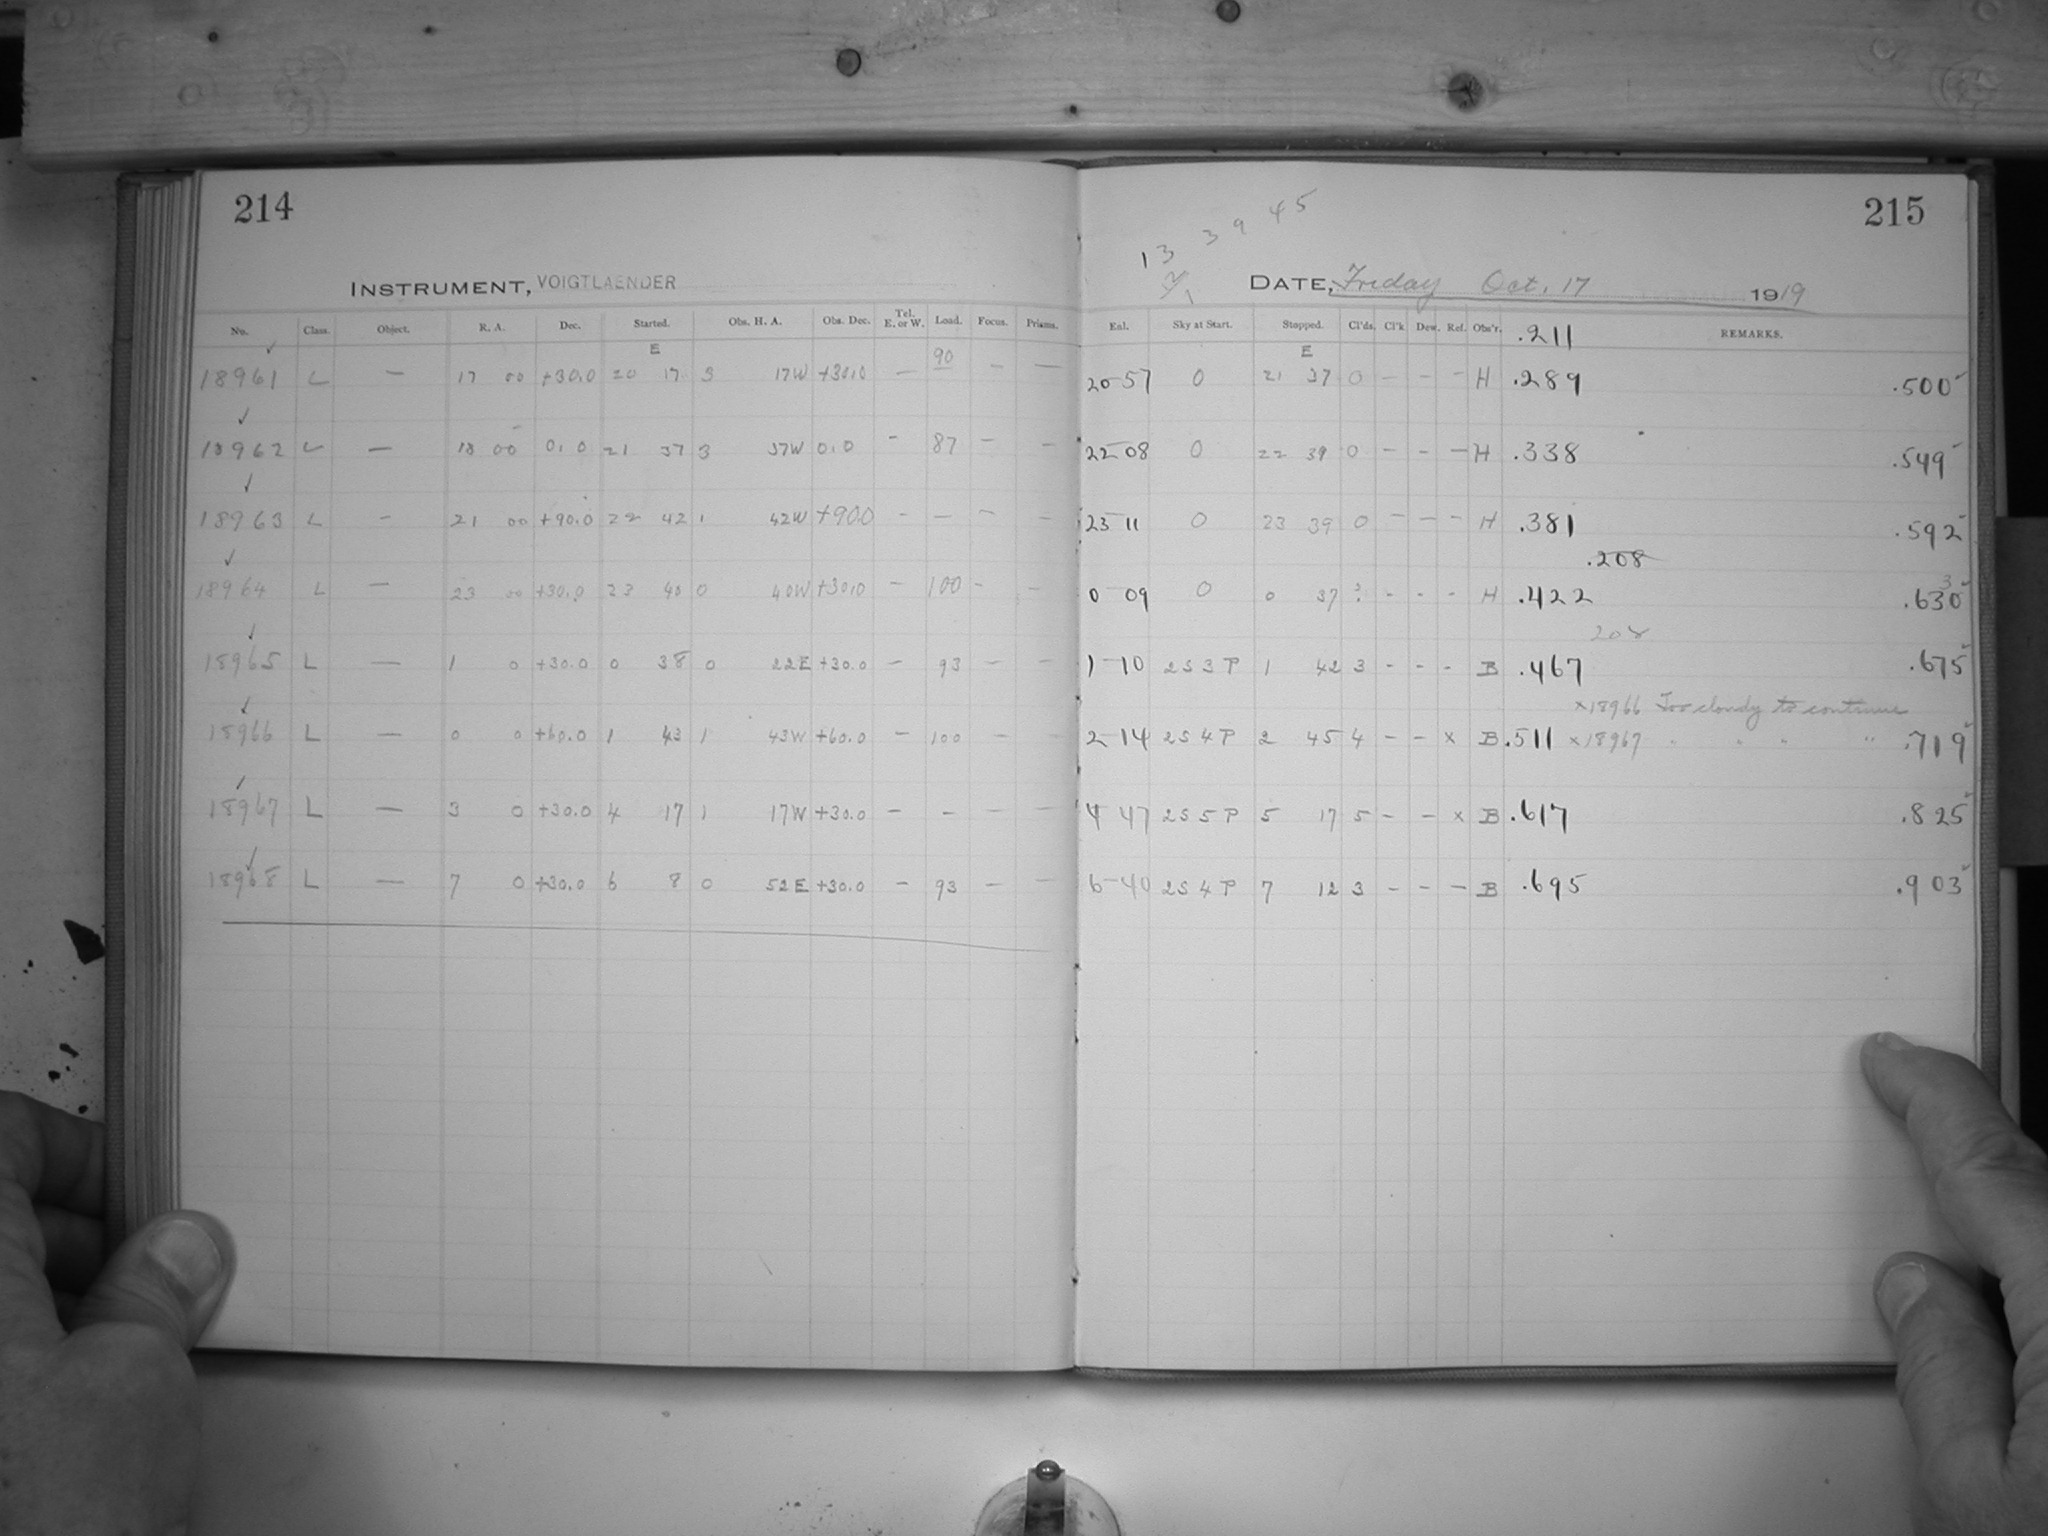 214
INSTRUMENT, VOIGTLAENDER
No. Class. Object. R. A. Dec. Started. Obs. H. A. Obs. Dec. Tel. E. or W. Load. Focus. Prisms.
E
18961 L — 17 00 +30.0 20 17 3 17W +30.0 — 90 — —
18962 L — 18 00 0.0 21 37 3 37W 0.0 — 87 — —
18963 L — 21 00 +90.0 22 42 1 42W +90.0 — — — —
18964 L — 23 00 +30.0 23 40 0 40W +30.0 — 100 — —
18965 L — 1 0 +30.0 0 38 0 22E +30.0 — 93 — —
18966 L — 0 0 +60.0 1 43 1 43W +60.0 — 100 — —
18967 L — 3 0 +30.0 4 17 1 17W +30.0 — — — —
18968 L — 7 0 +30.0 6 8 0 52E +30.0 — 93 — —
215
13 39 45
DATE, Friday Oct. 17 1919
Exl. Sky at Start. Stopped. Cl'ds. Cl'k Dew. Ref. Obs'r. .211 REMARKS.
E
20-57 0 21 37 0 — — — H .289 .500
22 08 0 22 39 0 — — — H .338 .549
23 11 0 23 39 0 — — — H .381 .592
.208
0 09 0 0 37 ? - - - H .422 .630
3
208
1-10 2S3P 1 42 3 - - - B .467 .675
×18966 Too cloudy to continue
2-14 2S4P 2 45 4 — — x B .511 ×18967 " " " " .719
4 47 2S5P 5 17 5 — — x B .617 .825
6-40 2S4P 7 12 3 — — — B .695 .903